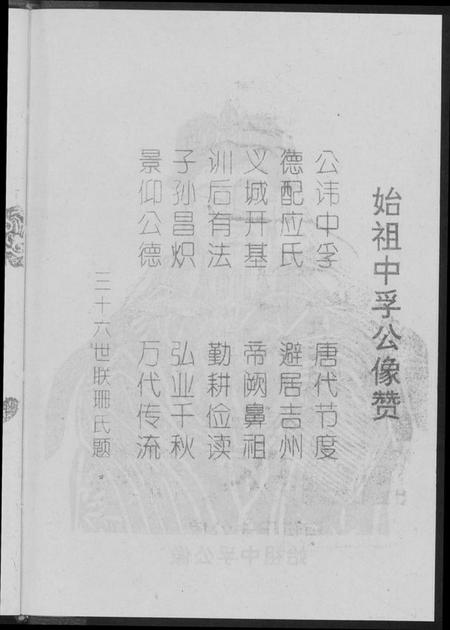 始祖中孚公像赞
公讳中孚 唐代节度
德配应氏 避居吉州
义城开基 帝阙鼻祖
训后有法 勤耕俭读
子孙昌炽 弘业千秋
景仰公德 万代传流
三十六世联珊氏题
始祖中孚公像